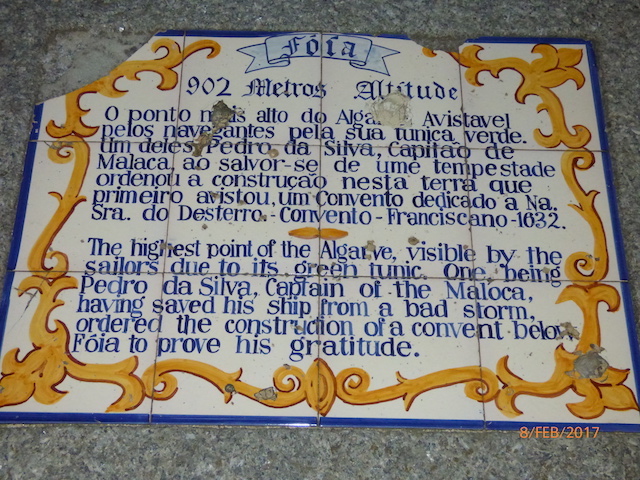 Fóia
902 Metros Altitude
O ponto mais alto do Algar Avistavel
pelos navegantes pela sua tunica verde.
Um deles Pedro da Silva, Capitão de
Malaca, ao salvor-se de ume tempestade
ordenou a construção nesta terra que
primeiro avistou, um Convento dedicado a Na.
Sra. do Desterro.-Convento-Franciscano-1632.
The highest point of the Algarve, visible by the
sailors due to its green tunic. One, being
Pedro da Silva, Captain of the Maloca,
having saved his ship from a bad storm,
ordered the construcion of a convent below
Fóia to prove his gratitude.
8/FEB/2017